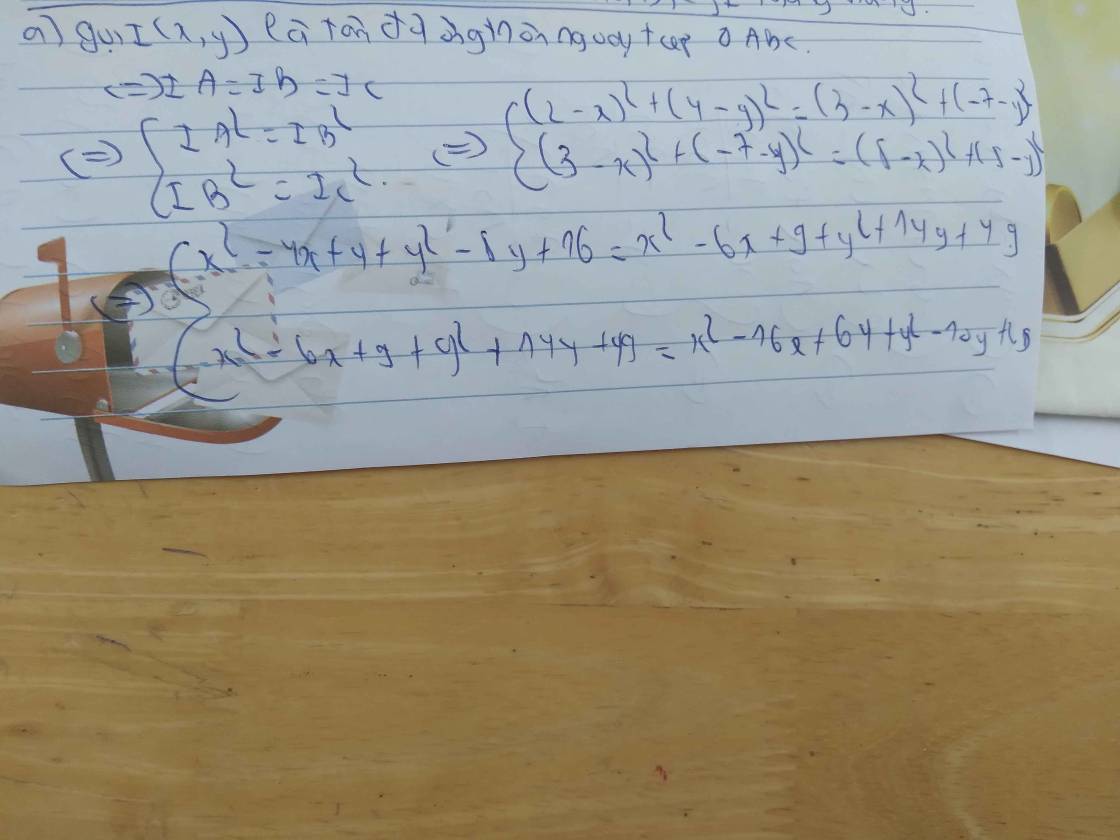 a) gọi I(x,y) là tâm đường tròn ngoại tiếp ΔABC.
(=) IA = IB = IC
(=) { IA² = IB² (=) { (2-x)² + (4-y)² = (3-x)² + (-7-y)²
IB² = IC². (3-x)² + (-7-y)² = (8-x)² + (5-y)²
(=) { x² - 4x + 4 + y² - 8y + 16 = x² - 6x + 9 + y² + 14y + 49
x² - 6x + 9 + y² + 14y + 49 = x² - 16x + 64 + y² - 10y + 25